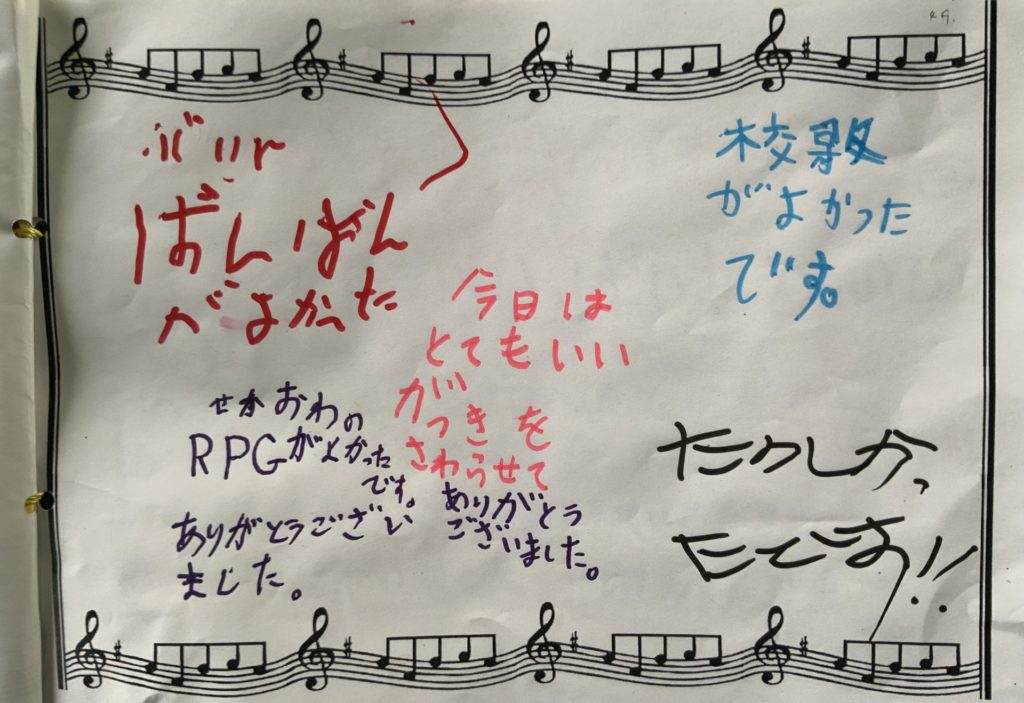 ばんばん
がよかった
校歌
がよかった
です。
今日は
とてもいい
がっきを
さわらせて
ありがとう
ございました。
せかおわの
RPGがよかった
です。
ありがとうござい
ました。
たのしかっ
たです!!